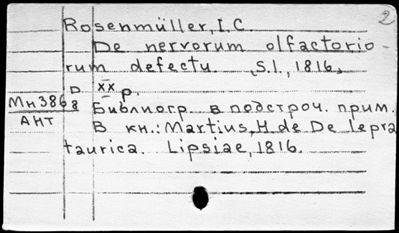 2
Rosenmüller, I. C.
De nervorum olfactorio-
rum defectu. S.l., 1816,
p. xx p.
Мн3868 Библиогр. в подстроч. прим.
АНТ В кн.: Martius, H. de De lepra
taurica. Lipsiae, 1816.